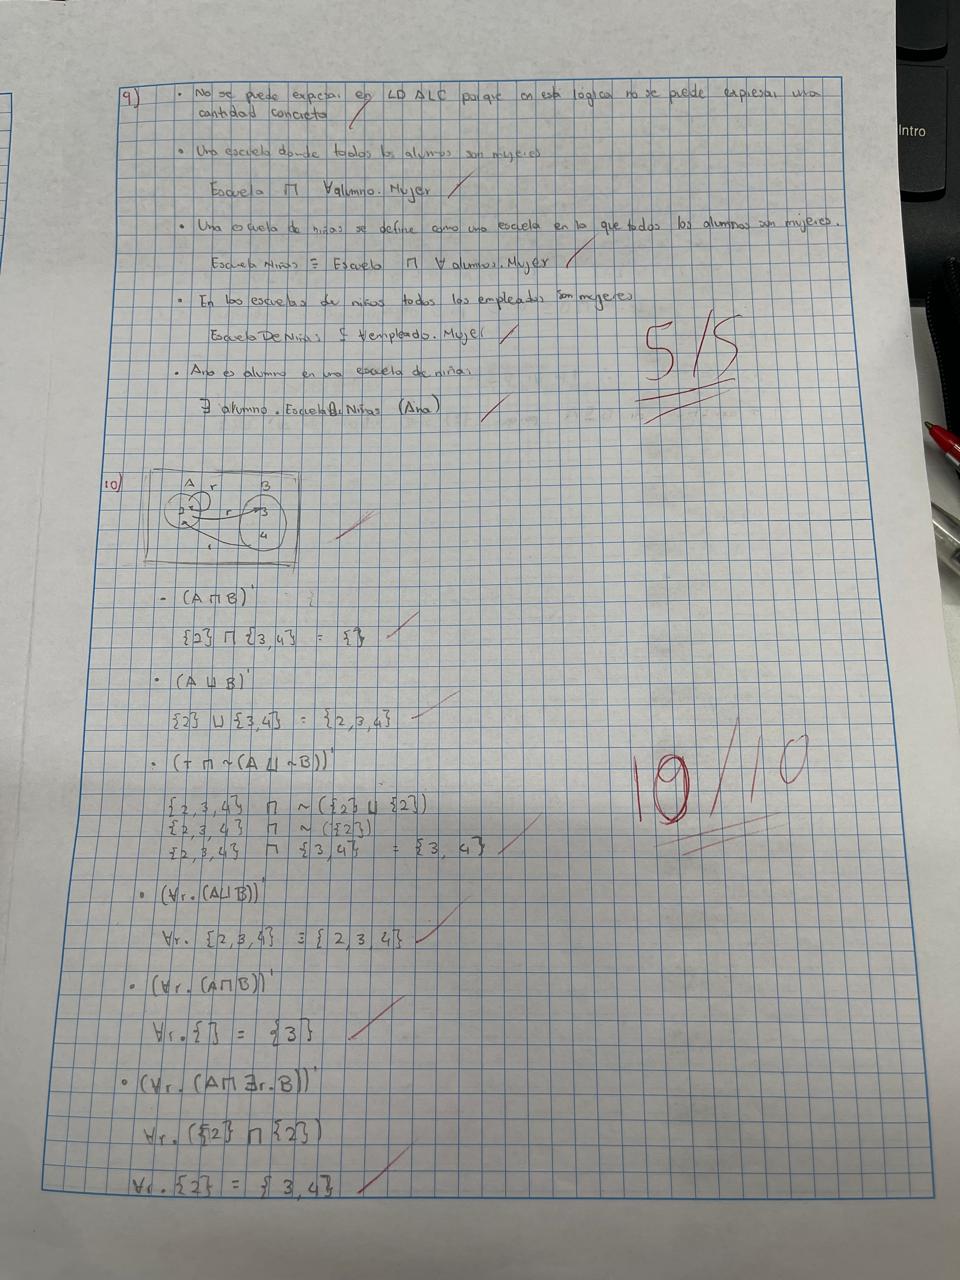 9) • No se puede expresar en LD ALC porque en esta lógica no se puede expresar una
cantidad concreta
• Una escuela donde todos los alumnos son mujeres
Escuela ⊓ ∀alumno. Mujer
• Una escuela de niñas se define como una escuela en la que todos los alumnos son mujeres.
Escuela Niñas ≡ Escuela ⊓ ∀ alumnos. Mujer
• En las escuelas de niñas todos los empleados son mujeres
Escuela De Niñas ⊑ ∀empleado. Mujer
5/5
• Ana es alumno en una escuela de niñas
∃ alumno. Escuela De Niñas (Ana)
Intro
10)
A r B
2 r 3
4
r
- (A ⊓ B)'
{2} ⊓ {3,4} = {}
• (A ⊔ B)'
{2} ⊔ {3,4} = {2,3,4}
• (⊤ ⊓ ~(A ⊔ ~B))'
10/10
{2,3,4} ⊓ ~({2} ⊔ {2})
{2,3,4} ⊓ ~({2})
{2,3,4} ⊓ {3,4} = {3, 4}
• (∀r. (A⊔B))'
∀r. {2,3,4} ≡ {2,3,4}
• (∀r. (A⊓B))'
∀r. {} = {3}
• (∀r. (A⊓∃r.B))'
∀r. ({2} ⊓ {2})
∀r. {2} = {3,4}